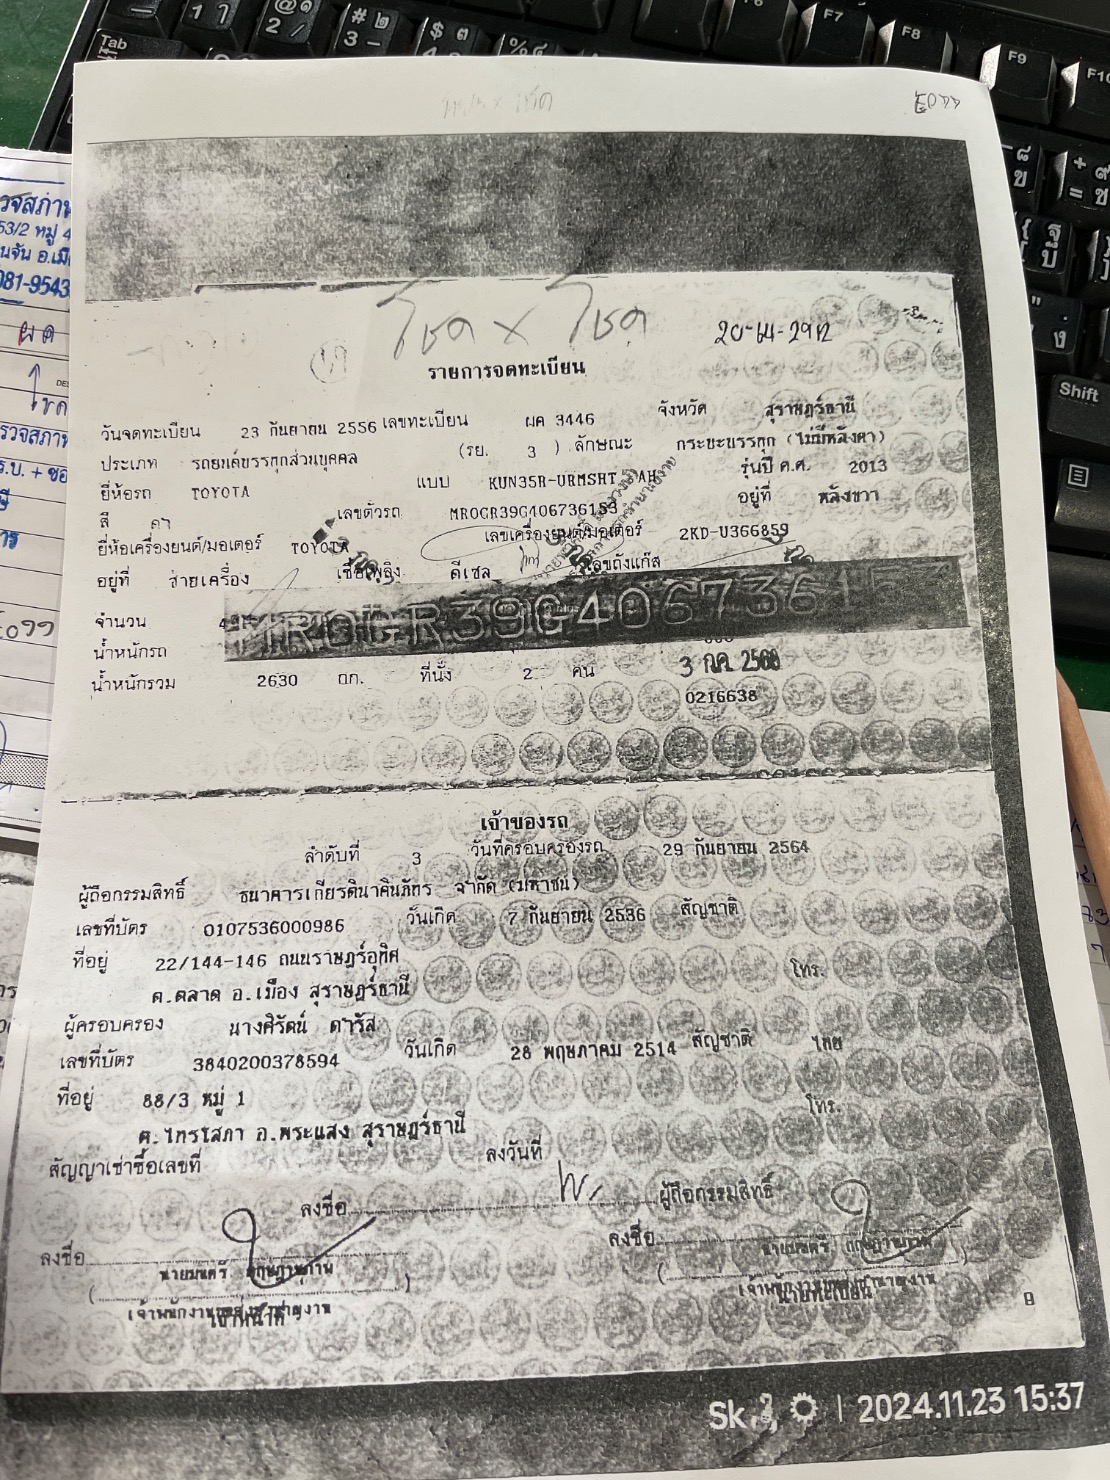 F7
F8
F9
F10
Tab
Shift
EODD
โชค x โชค
20-ฝ4-29ท
รายการจดทะเบียน
วันจดทะเบียน 23 กันยายน 2556 เลขทะเบียน ผค 3446 จังหวัด สุราษฎร์ธานี
ประเภท รถยนต์บรรทุกส่วนบุคคล (รย. 3 ) ลักษณะ กระบะบรรทุก (ไม่มีหลังคา)
ยี่ห้อรถ TOYOTA แบบ KUN35R-URMSHT AH รุ่นปี ค.ศ. 2013
สี ดำ เลขตัวรถ MR0GR39G406736153 อยู่ที่ หลังขวา
ยี่ห้อเครื่องยนต์/มอเตอร์ TOYOTA เลขเครื่องยนต์/มอเตอร์ 2KD-U366859
อยู่ที่ ซ้ายเครื่อง เชื้อเพลิง ดีเซล เลขถังแก๊ส
MR0GR39G406736153
จำนวน 4
น้ำหนักรถ
น้ำหนักรวม 2630 กก. ที่นั่ง 2 คน
3 ก.ค. 2566
0216638
เจ้าของรถ
ลำดับที่ 3 วันที่ครอบครองรถ 29 กันยายน 2564
ผู้ถือกรรมสิทธิ์ ธนาคารเกียรตินาคินภัทร จำกัด (มหาชน)
เลขที่บัตร 0107536000986 วันเกิด 7 กันยายน 2536 สัญชาติ
ที่อยู่ 22/144-146 ถนนราษฎร์อุทิศ โทร.
ต.ตลาด อ.เมือง สุราษฎร์ธานี
ผู้ครอบครอง นางศิริรัตน์ ดารัส
เลขที่บัตร 3840200378594 วันเกิด 28 พฤษภาคม 2514 สัญชาติ ไทย
ที่อยู่ 88/3 หมู่ 1 โทร.
ต.ไทรโสภา อ.พระแสง สุราษฎร์ธานี
สัญญาเช่าซื้อเลขที่ ลงวันที่
ลงชื่อ ผู้ถือกรรมสิทธิ์
ลงชื่อ ลงชื่อ
นายมนตรี
เจ้าพนักงานขนส่งชำนาญงาน
8
2024.11.23 15:37